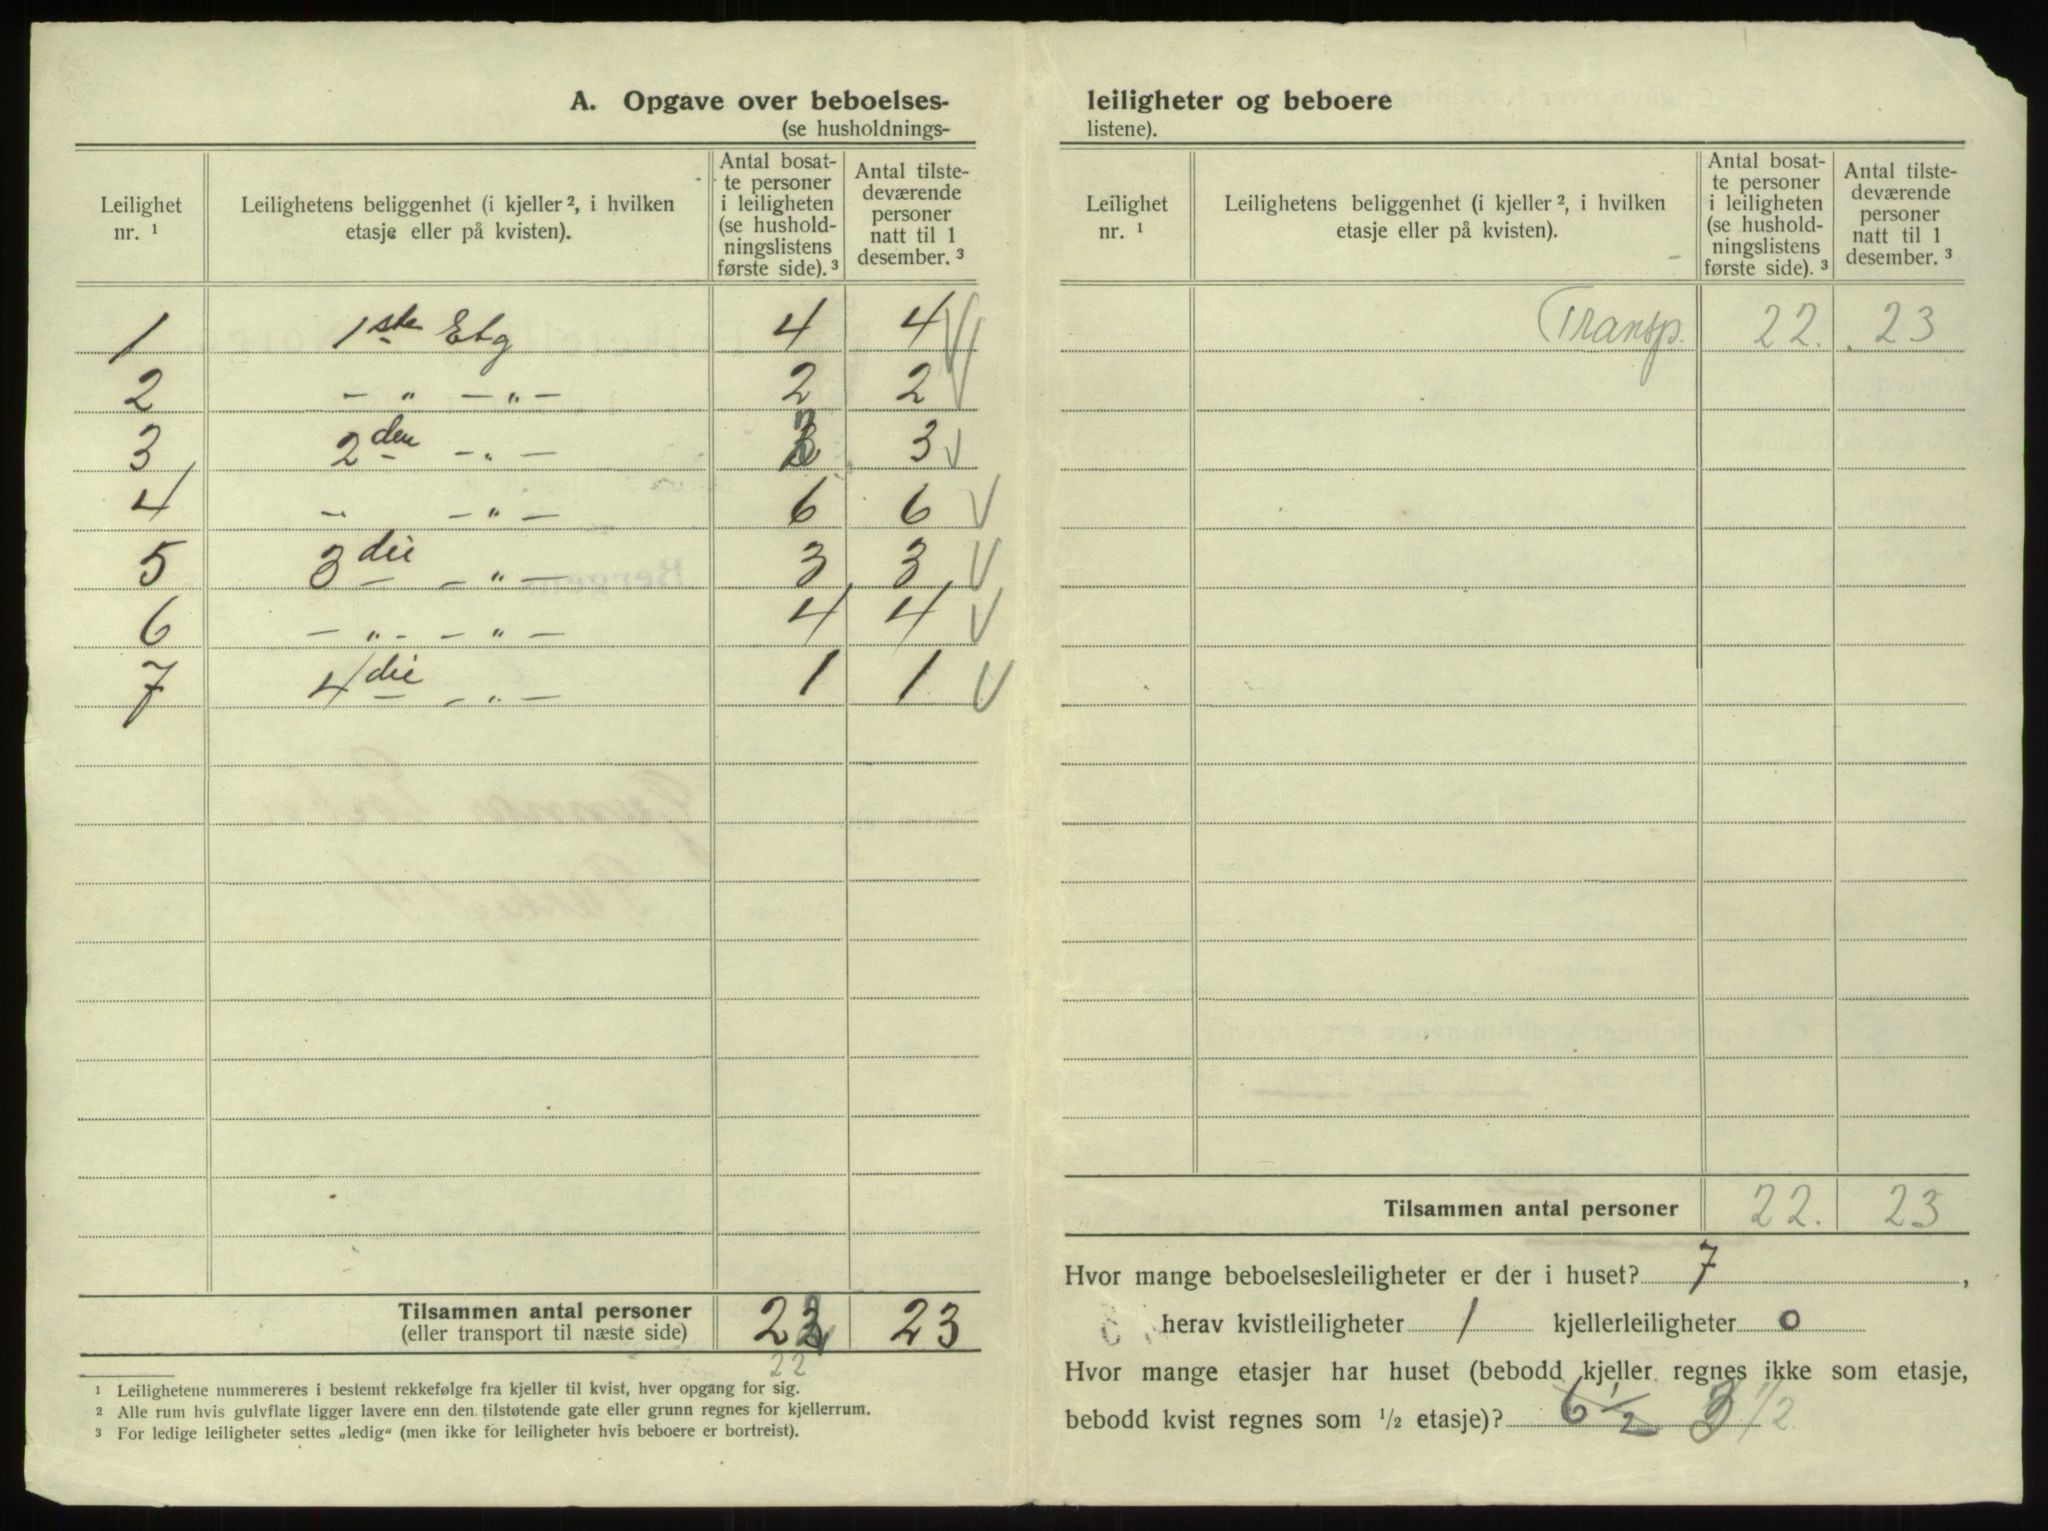 A. Opgave over beboelses-
(se husholdnings-
Leilighet nr. ¹
Leilighetens beliggenhet (i kjeller ², i hvilken etasje eller på kvisten).
Antal bosat-
te personer
i leiligheten
(se hushold-
ningslistens
første side). ³
Antal tilste-
deværende
personer
natt til 1
desember. ³
1 1ste Etg 4 4
2 – „ – „ – 2 2
3 2den – „ – 2 3
4 – „ – „ – 6 6
5 3die – „ – 3 3
6 – „ – – „ – 4 4
7 4die – „ – 1 1
Tilsammen antal personer 22 23
(eller transport til næste side)
22
¹ Leilighetene nummereres i bestemt rekkefølge fra kjeller til kvist, hver opgang for sig.
² Alle rum hvis gulvflate ligger lavere enn den tilstøtende gate eller grunn regnes for kjellerrum.
³ For ledige leiligheter settes „ledig“ (men ikke for leiligheter hvis beboere er bortreist).
leiligheter og beboere
listene).
Leilighet nr. ¹
Leilighetens beliggenhet (i kjeller ², i hvilken etasje eller på kvisten).
Antal bosat-
te personer
i leiligheten
(se hushold-
ningslistens
første side). ³
Antal tilste-
deværende
personer
natt til 1
desember. ³
Transp. 22. 23
Tilsammen antal personer 22. 23
Hvor mange beboelsesleiligheter er der i huset? 7,
herav kvistleiligheter 1 kjellerleiligheter 0
Hvor mange etasjer har huset (bebodd kjeller regnes ikke som etasje,
bebodd kvist regnes som ½ etasje)? 6½ 3½.